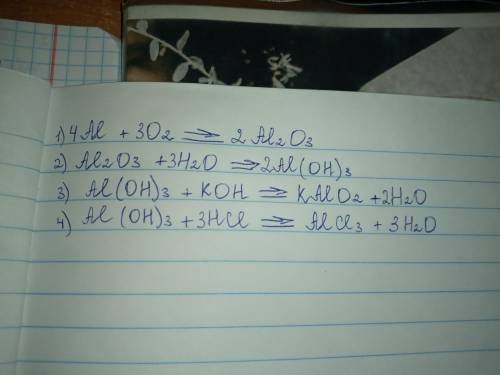 1) 4Al + 3O2 ⇒ 2Al2O3
2) Al2O3 + 3H2O ⇒ 2Al(OH)3
3) Al(OH)3 + KOH ⇒ KAlO2 + 2H2O
4) Al(OH)3 + 3HCl ⇒ AlCl3 + 3H2O